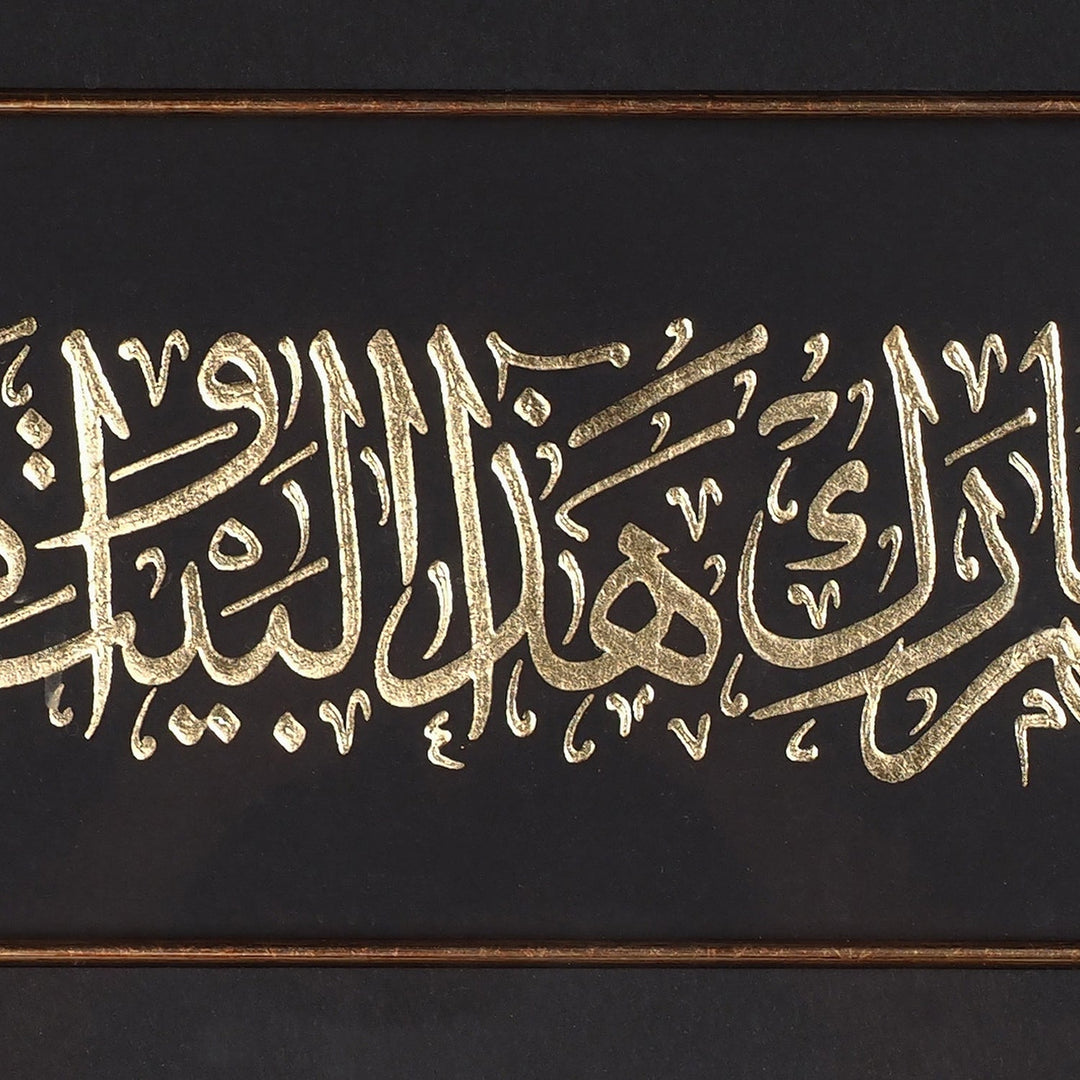 بارك هذا البيت